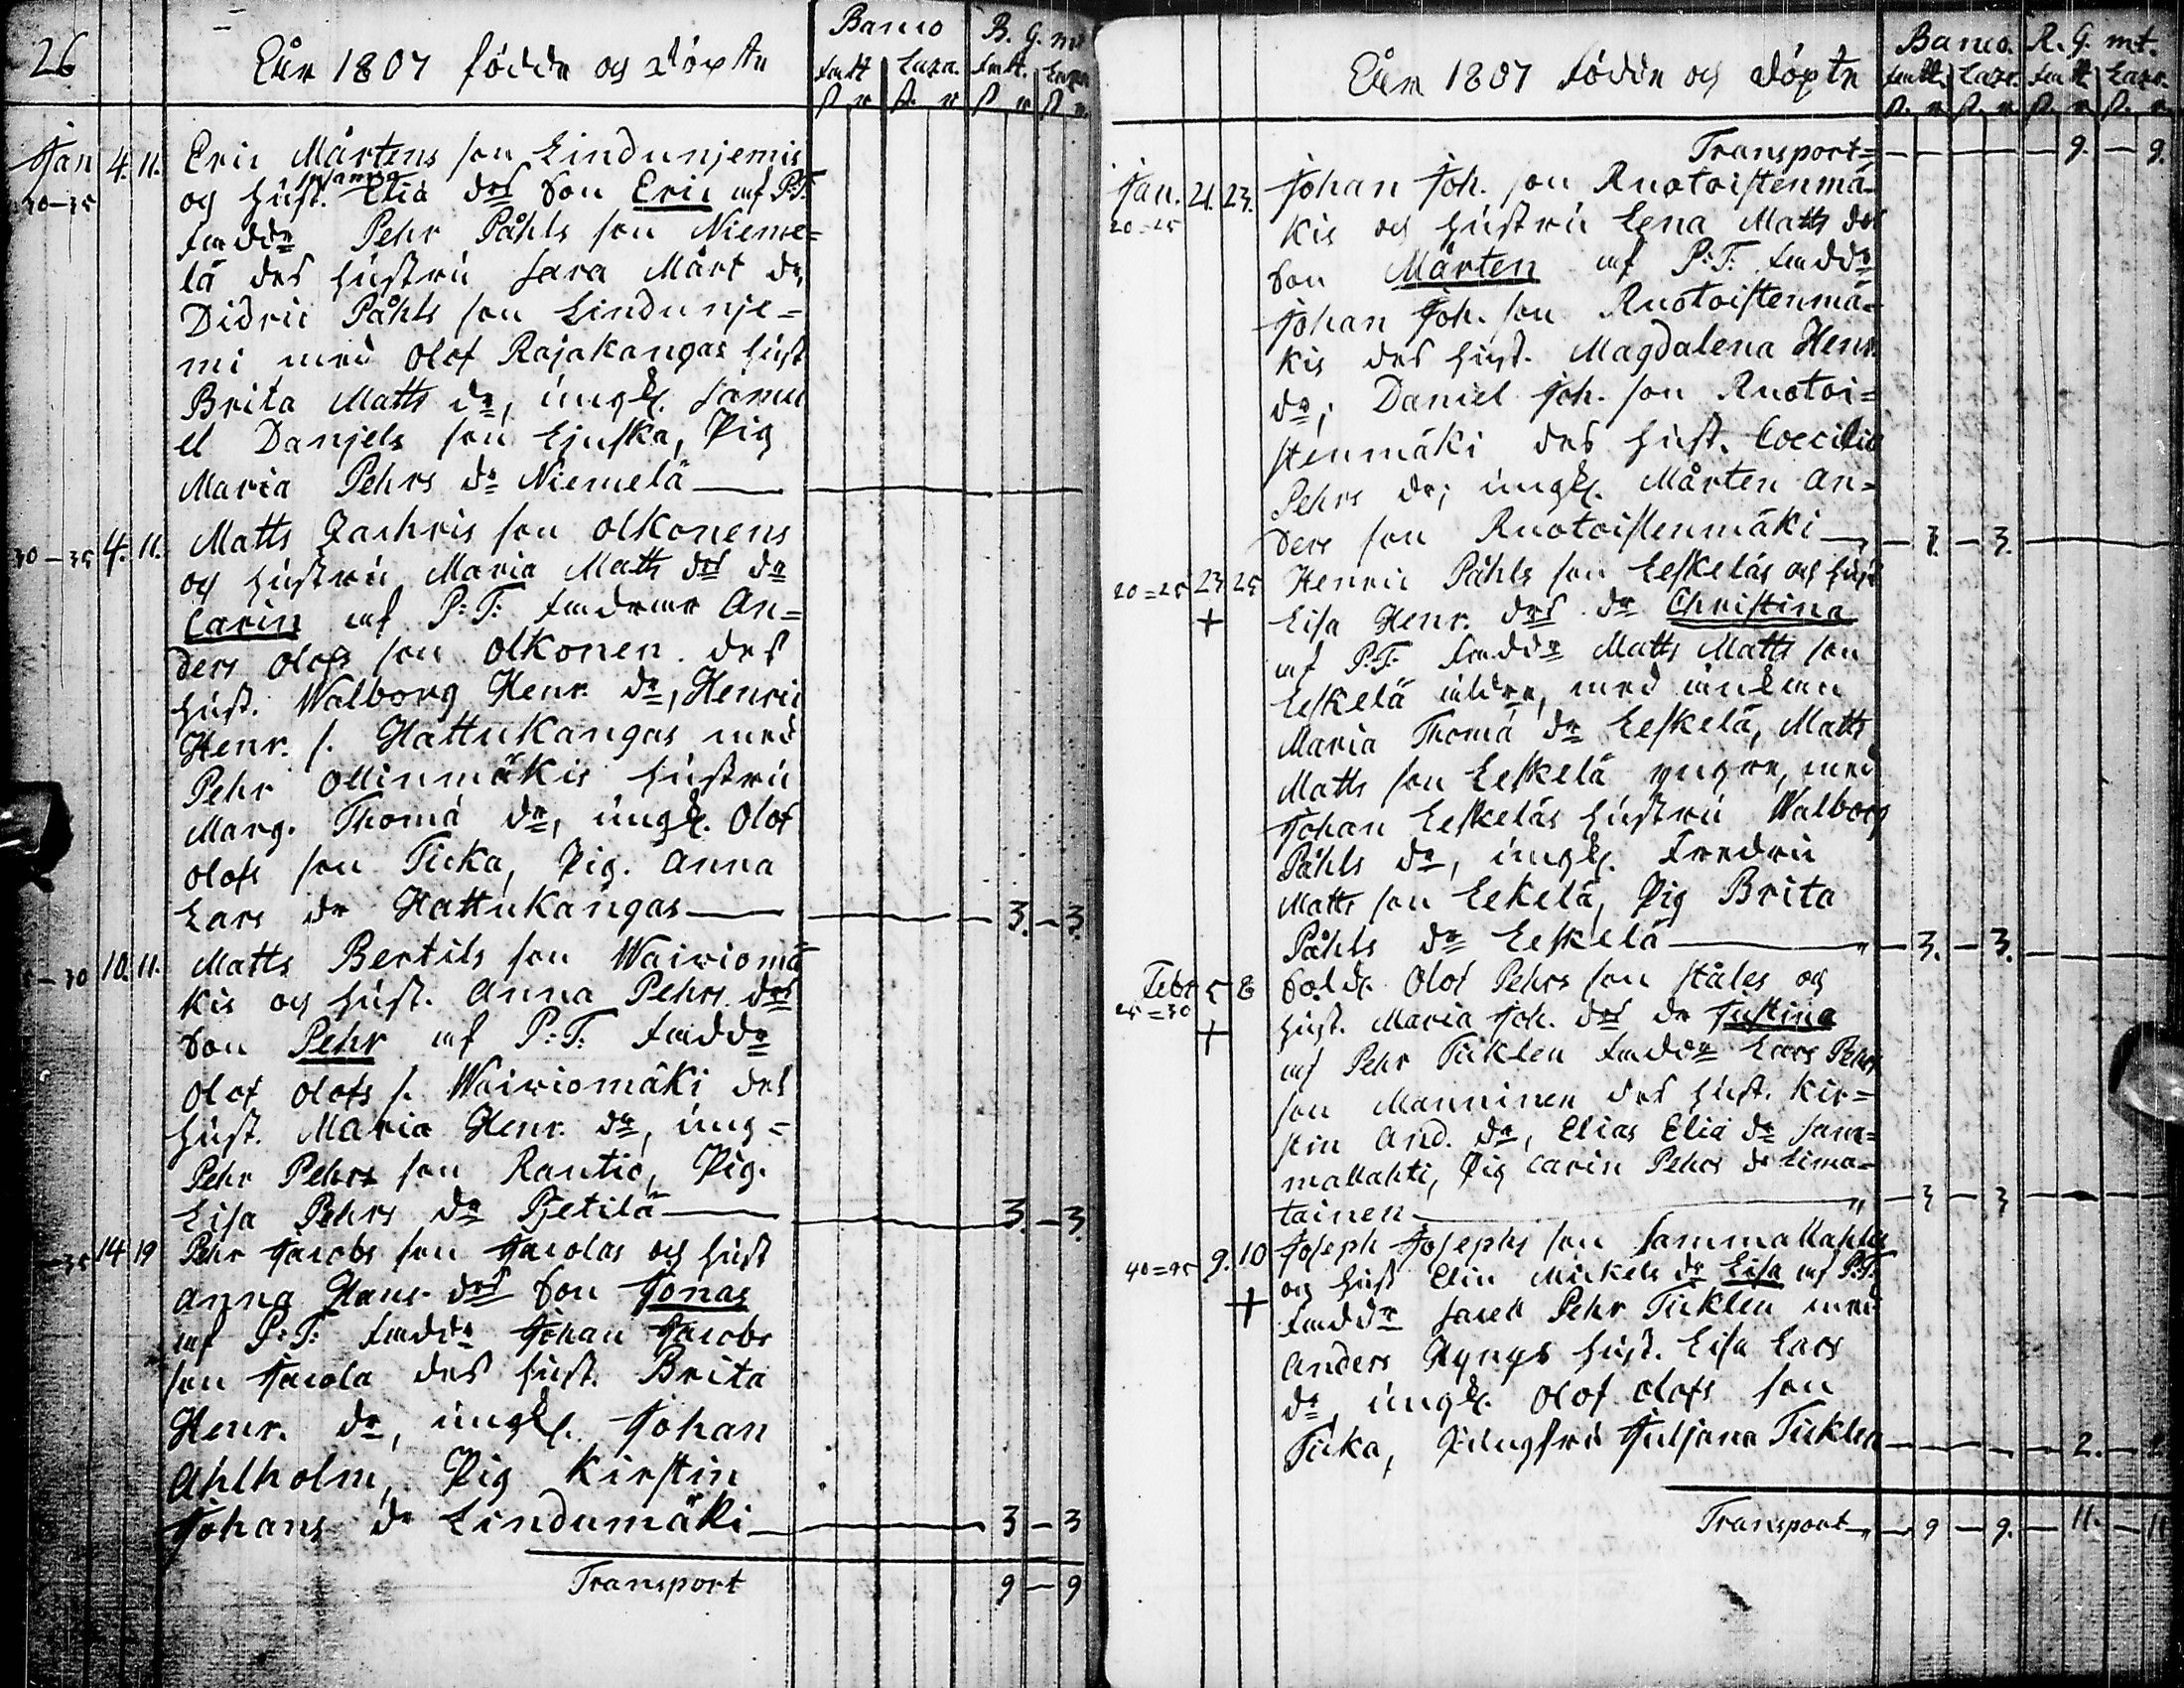 26
Åår 1807 födde och döpte
Banco R. G. mt
Fatt. Laza. Fatt. Laza.
Jan 4. 11. Eric Mårtens son Lindunjemis
och hust. Elia drs Son Eric af P:T:
30-35 faddr Pehr Påhls son Nieme=
lä des hustru Sara Mårt dr,
Didric Påhls son Lindunje=
mi med Olof Rajakangas hust
Brita Matts dr, ungk. Samu
el Danjels son Ljuska, Pig
Maria Pehrs dr Niemelä
Matts Zachris son Olkonens
30-35 4. 11. och hustru Maria Matts drs dr
Carin af P:T: faddrar An=
ders Olofs son Olkonen des
hust. Walborg Henr. dr, Henric
Henr. s. Hattukangas med
Pehr Ollinmäkis hustru
Marg. Thomä dr, ungk. Olof
Olofs son Ticka, Pig. Anna
Lars dr Hattukangas 3. - 3.
-30 10. 11. Matts Bertils son Wairiomä=
kis och hust. Anna Pehrs drs
Son Pehr af P:T: faddr
Olof Olofs s. Wairiomäki des
hust. Maria Henr. dr, ung=
Pehr Pehrs son Rautio, Pig.
Lisa Pehrs dr Pjetilä 3. - 3.
-35 14 19 Pehr Jacobs son Jacolas och hust
Anna Hans drs Son Jonas
af P:T: faddr Johan Jacobs
son Jacola des hust. Brita
Henr. dr, ungk. Johan
Ahlholm, Pig Kirstin
Johans dr Lindumäki 3 - 3
Transport 9 - 9
Åår 1807 födde och döpte
Banco. R. G. mt.
Fatt. Lazr. Fatt. Lazr.
Transport= 9. - 9.
Jan. 21. 23. Johan Joh. son Ruotoistenmä=
20=25 kis och hustru Lena Matts drs
Son Mårten af P:T: faddr
Johan Joh. son Ruotoistenmä=
kis des hust. Magdalena Henr.
dr, Daniel Joh. son Ruotoi=
stenmäki des hust. Coecilia
Pehrs dr, ungk. Mårten An=
ders son Ruotoistenmäki 3. - 3.
20=25 23 25 Henric Påhls son Leskeläs och hust
+ Lisa Henr. drs dr Christina
af P:T: faddr Matts Matts son
Leskelä äldre, med änkan
Maria Thomä dr Leskelä, Matts
Matts son Leskelä yngre, med
Johan Leskeläs hustru Walborg
Påhls dr, ungk. Fredric
Matts son Lekelä, Pig Brita
Påhls dr Leskelä 3. - 3.
Febr 5 8 Sold. Olof Pehrs son Ståles och
25=30 hust. Maria Joh. drs dr Justina
+ af Pehr Ticklen faddr Lars Pehrs
son Manninen des hust. Kir=
stin And. dr, Elias Eliä dr Sam=
mallahti, Pig Carin Pehrs dr Lima=
tainen 3 - 3
40=45 9. 10 Joseph Josephs son Sammallahtis
och hust Elin Mickels dr Lisa af P:T:
+ faddr Pehr Ticklen med
Anders Hynys hust. Lisa Lars
dr, ungk. Olof Olofs son
Ticka, Jungfru Juljana Ticklen 2. - 2
Transport 9 - 9. - 11. - 11